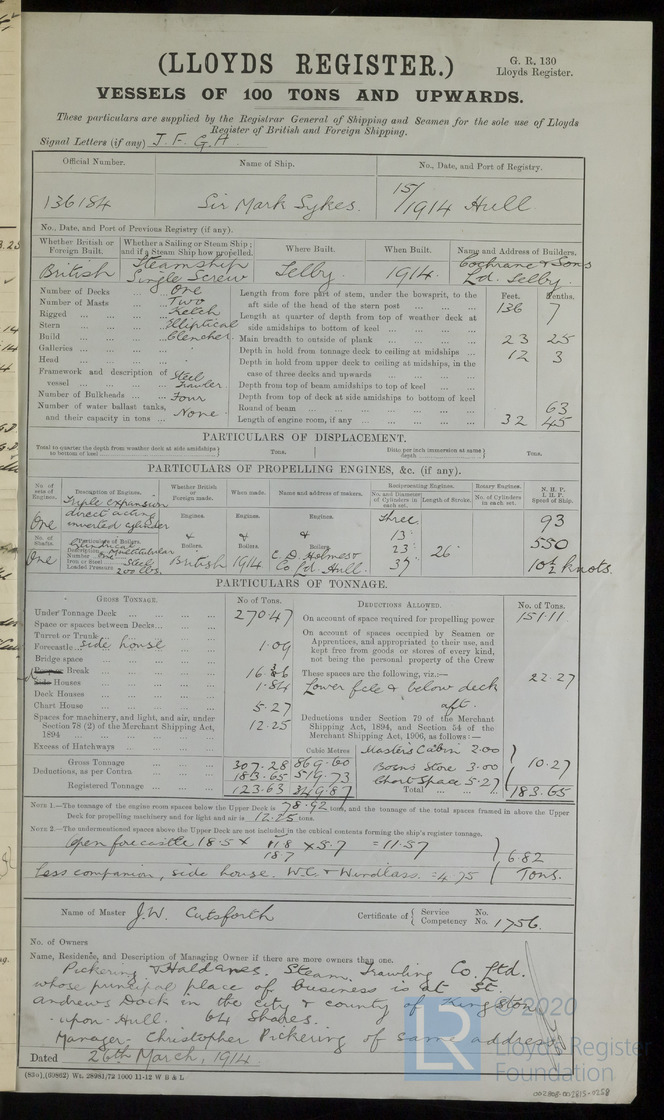 (LLOYDS REGISTER.)
G. R. 130
Lloyds Register.
VESSELS OF 100 TONS AND UPWARDS.
These particulars are supplied by the Registrar General of Shipping and Seamen for the sole use of Lloyds
Register of British and Foreign Shipping.
Signal Letters (if any) J. F. G. H.
Official Number. Name of Ship. No., Date, and Port of Registry.
136184 Sir Mark Sykes. 15/1914 Hull
No., Date, and Port of Previous Registry (if any).
Whether British or Foreign Built. Whether a Sailing or Steam Ship; and if a Steam Ship how propelled. Where Built. When Built. Name and Address of Builders.
British Steamship Single Screw Selby. 1914. Cochrane & Sons Ld. Selby.
Number of Decks ... One
Number of Masts ... Two
Rigged ... Ketch
Stern ... Elliptical
Build ... Clencher
Galleries ...
Head ...
Framework and description of vessel ... Steel Trawler
Number of Bulkheads ... Four
Number of water ballast tanks, and their capacity in tons ... None
Feet. Tenths.
Length from fore part of stem, under the bowsprit, to the aft side of the head of the stern post ... 136 7
Length at quarter of depth from top of weather deck at side amidships to bottom of keel ...
Main breadth to outside of plank ... 23 25
Depth in hold from tonnage deck to ceiling at midships ... 12 3
Depth in hold from upper deck to ceiling at midships, in the case of three decks and upwards ...
Depth from top of beam amidships to top of keel ...
Depth from top of deck at side amidships to bottom of keel
Round of beam ... 63
Length of engine room, if any ... 32 45
PARTICULARS OF DISPLACEMENT.
Total to quarter the depth from weather deck at side amidships to bottom of keel ... Tons. Ditto per inch immersion at same depth ... Tons.
PARTICULARS OF PROPELLING ENGINES, &c. (if any).
No. of sets of Engines. Description of Engines. Whether British or Foreign made. When made. Name and address of makers. Reciprocating Engines. Rotary Engines. N. H. P. I. H. P. Speed of Ship.
No. and Diameter of Cylinders in each set. Length of Stroke. No. of Cylinders in each set.
One Triple expansion direct acting inverted cylinder Engines. Engines. Engines. Three 93
& & 13" 550
No. of Shafts. Particulars of Boilers. Boilers. Boilers. Boilers. 23" 26"
One Description Cylindrical Multitubular
Number One
Iron or Steel Steel
Loaded Pressure 200 lbs. British 1914 C. D. Holmes & Co Ld. Hull. 37" 10½ knots.
PARTICULARS OF TONNAGE.
GROSS TONNAGE. No. of Tons. DEDUCTIONS ALLOWED. No. of Tons.
Under Tonnage Deck ... 270.47
On account of space required for propelling power 151.11
Space or spaces between Decks ...
Turret or Trunk ...
Forecastle side house 1.09
Bridge space ...
Break ...
Houses ... 1.84
Deck Houses ...
Chart House ... 5.27
Spaces for machinery, and light, and air, under Section 78 (2) of the Merchant Shipping Act, 1894 ... 12.25
Excess of Hatchways ...
On account of spaces occupied by Seamen or Apprentices, and appropriated to their use, and kept free from goods or stores of every kind, not being the personal property of the Crew
These spaces are the following, viz.:— 22.27
Lower fcle & below deck aft.
Deductions under Section 79 of the Merchant Shipping Act, 1894, and Section 54 of the Merchant Shipping Act, 1906, as follows:—
Cubic Metres
Master's Cabin 2.00
Bosns Store 3.00 10.27
Chart Space 5.27
Gross Tonnage 307.28 869.60
Deductions, as per Contra 183.65 519.73
Registered Tonnage 123.63 349.87
Total 183.65
NOTE 1.—The tonnage of the engine room spaces below the Upper Deck is 78.92 tons, and the tonnage of the total spaces framed in above the Upper
Deck for propelling machinery and for light and air is 12.25 tons.
NOTE 2.—The undermentioned spaces above the Upper Deck are not included in the cubical contents forming the ship's register tonnage.
Open forecastle 18.5 × 11.8 × 5.7 = 11.57
18.7 6.82
Less companion, side house. W.C. & Windlass. = 4.75 Tons.
Name of Master J.W. Cutsforth Certificate of { Service No. Competency No. 1756.
No. of Owners
Name, Residence, and Description of Managing Owner if there are more owners than one.
Pickering & Haldanes. Steam Trawling Co. Ltd.
whose principal place of business is at St.
Andrews Dock in the city & county of Kingston
upon Hull. 64 Shares.
Manager- Christopher Pickering of same address
Dated 26th March, 1914.
(83o),(09862) Wt. 28981/72 1000 11-12 W B & L
© 2020
LR
Lloyd's Register
Foundation